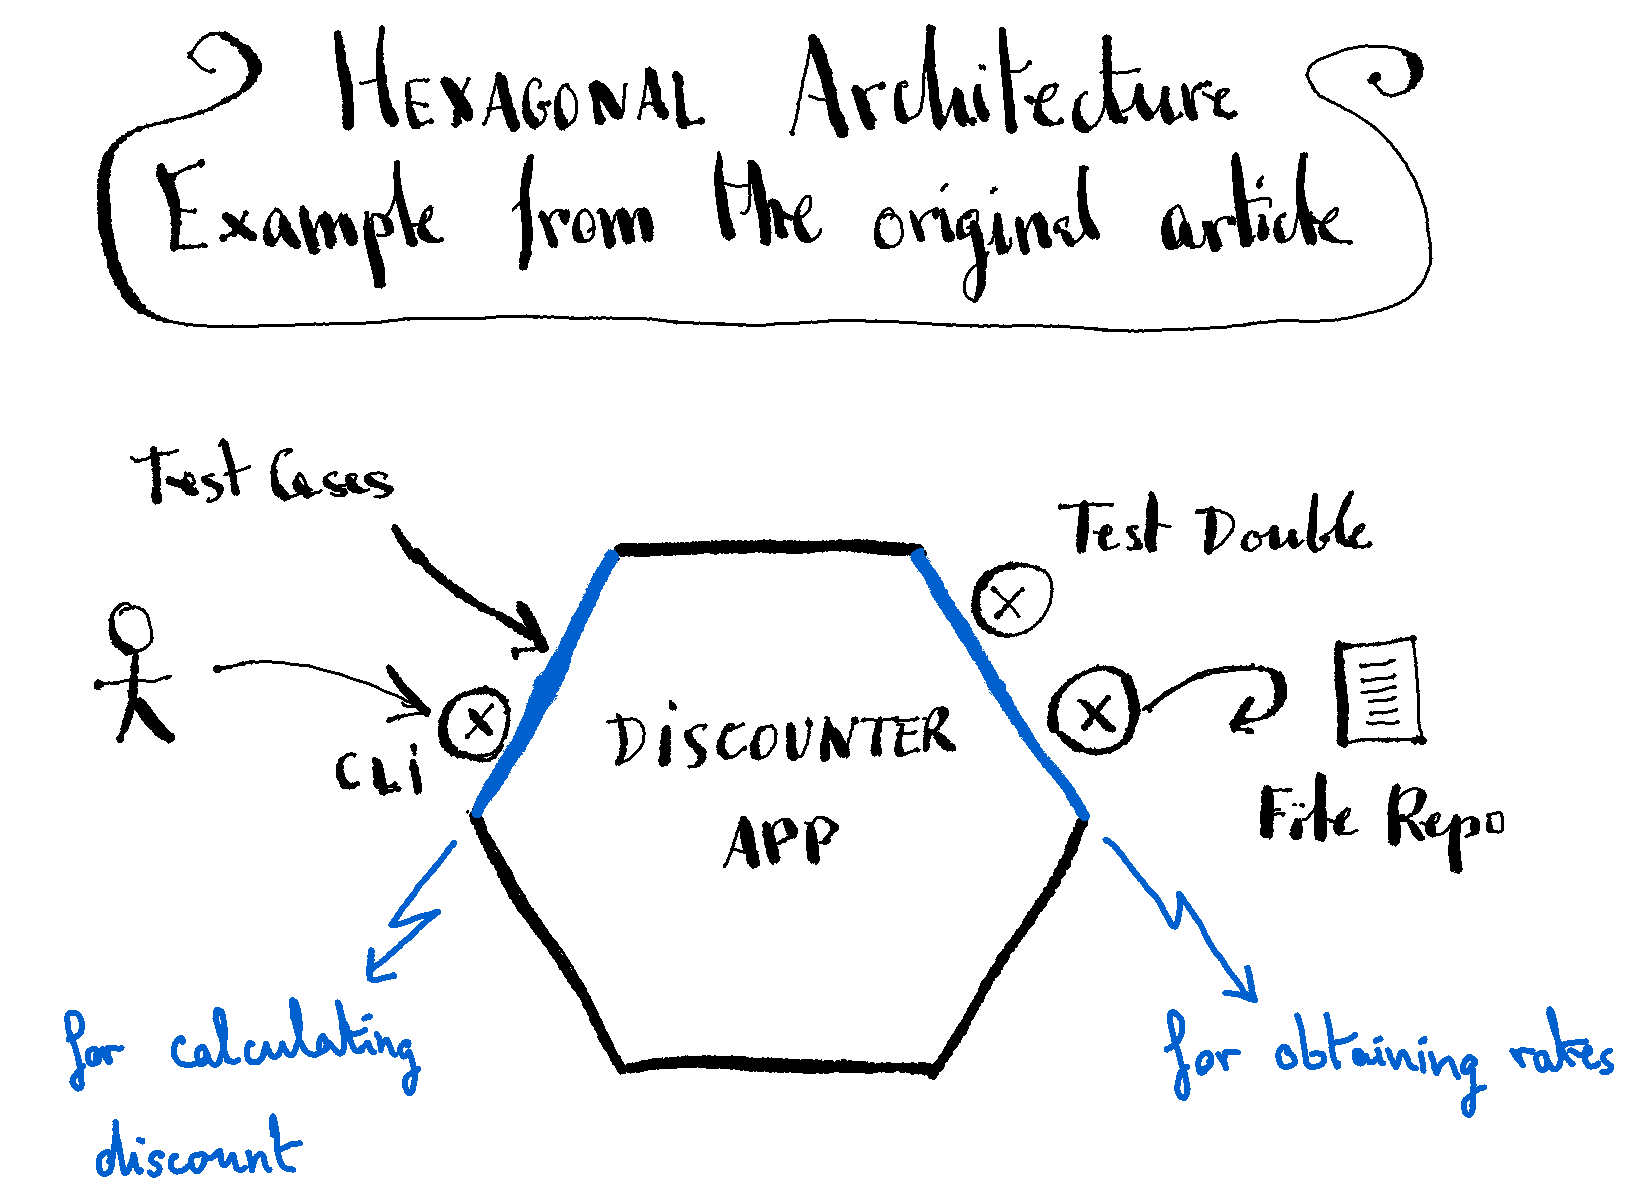 HEXAGONAL Architecture
Example from the original article
Test Cases
Test Double
CLi
DiSCOUNTER
APP
File Repo
for calculating
discount
for obtaining rates